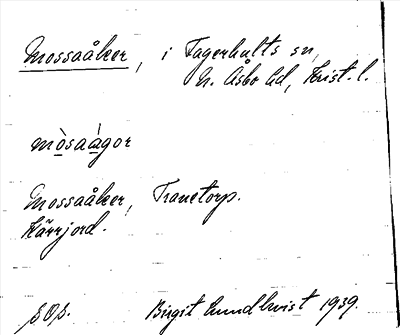 Mossaåker, i Fagerhults sn,
N. Åsbo hd, Krist. l.
mòsaágor
Mossaåker, Tranetorp.
Kärrjord.
Birgit Lundkvist 1939.